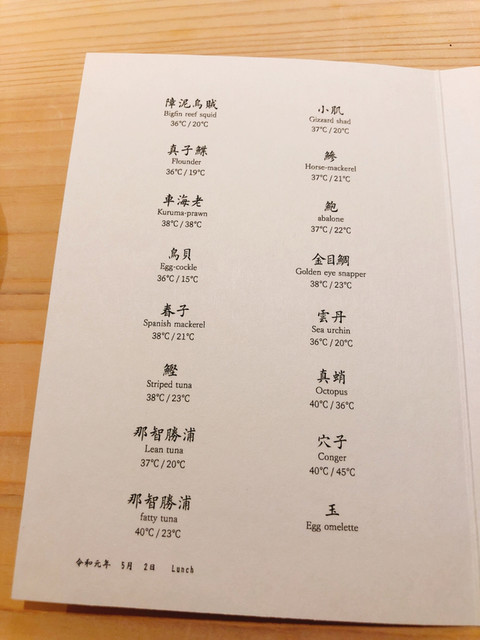 障泥烏賊
Bigfin reef squid
36℃ / 20℃
真子鰈
Flounder
36℃ / 19℃
車海老
Kuruma-prawn
38℃ / 38℃
鳥貝
Egg-cockle
36℃ / 15℃
春子
Spanish mackerel
38℃ / 21℃
鰹
Striped tuna
38℃ / 23℃
那智勝浦
Lean tuna
37℃ / 20℃
那智勝浦
fatty tuna
40℃ / 23℃
小肌
Gizzard shad
37℃ / 20℃
鯵
Horse-mackerel
37℃ / 21℃
鮑
abalone
37℃ / 22℃
金目鯛
Golden eye snapper
38℃ / 23℃
雲丹
Sea urchin
36℃ / 20℃
真蛸
Octopus
40℃ / 36℃
穴子
Conger
40℃ / 45℃
玉
Egg omelette
令和元年 5月 2日 Lunch